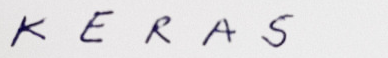 K E R A S